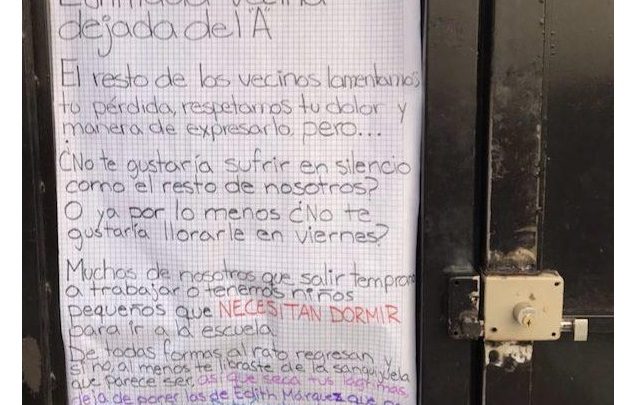 Estimada vecina
dejada del "A"
El resto de los vecinos lamentamos
tu pérdida, respetamos tu dolor y
manera de expresarlo pero...
¿No te gustaría sufrir en silencio
como el resto de nosotros?
O ya por lo menos ¿No te
gustaría llorarle en viernes?
Muchos de nosotros que salir temprano
a trabajar o tenemos niños
pequeños que NECESITAN DORMIR
para ir a la escuela
De todas formas al rato regresan y
si no, al menos te libraste de la sanguijuela
que parece ser, así que seca tus lágrimas,
deja de poner las de Edith Márquez que no